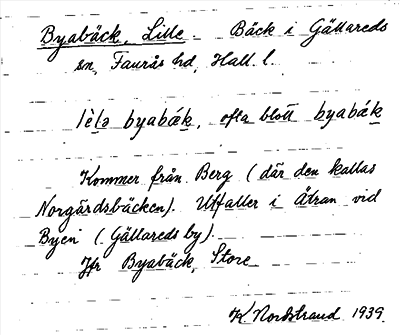 Byabäck, Lille. Bäck i Gällareds
sn, Faurås hd, Hall. l.
lèlə byabǽk, ofta blott byabǽk
Kommer från Berg (där den kallas
Norgärdsbäcken). Utfaller i Ätran vid
Byen (Gällareds by).
Jfr Byabäck, Store
K. Nordstrand 1939.